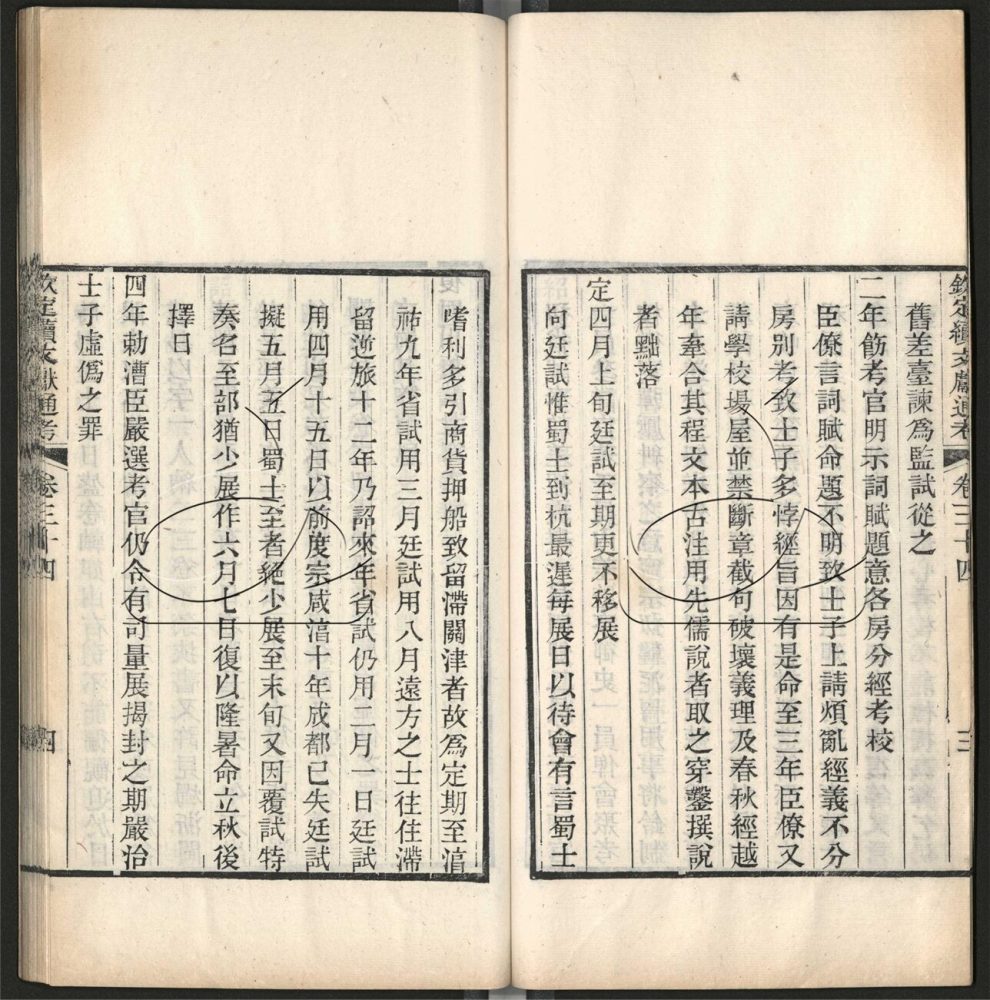 欽定續文獻通考 卷三十四 三
舊差臺諫爲監試從之
二年飭考官明示詞賦題意各房分經考校
臣僚言詞賦命題不明致士子上請煩亂經義不分
房别考致士子多悖經旨因有是命至三年臣僚又
請學校場屋並禁斷章截句破壞義理及春秋經越
年牽合其程文本古注用先儒說者取之穿鑿撰說
者黜落
定四月上旬廷試至期更不移展
向廷試惟蜀士到杭最遲每展日以待會有言蜀士
嗜利多引商貨押船致留滯關津者故爲定期至湻
祐九年省試用三月廷試用八月遠方之士往往滯
留逆旅十二年乃詔來年省試仍用二月一日廷試
用四月十五日以前度宗咸湻十年成都已失廷試
擬五月五日蜀士至者絕少展至末旬又因覆試特
奏名至部猶少展作六月七日復以隆暑命立秋後
擇日
四年勅漕臣嚴選考官仍令有司量展揭封之期嚴治
士子虛僞之罪
欽定續文獻通考 卷三十四 四